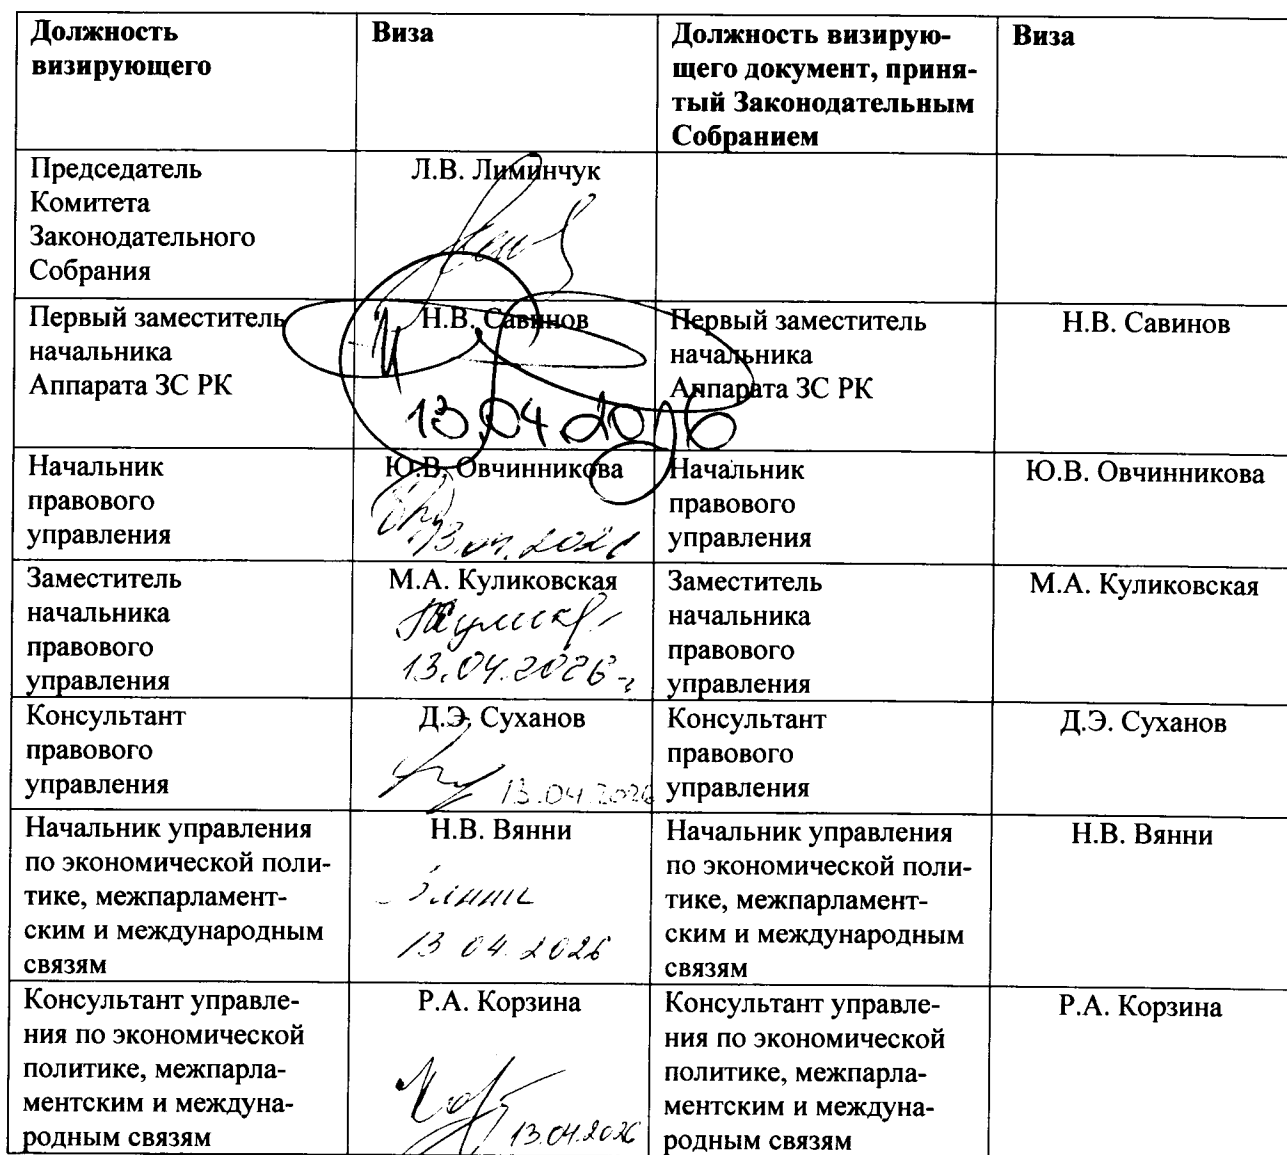 Должность
визирующего
Виза
Должность визирую-
щего документ, приня-
тый Законодательным
Собранием
Виза
Председатель
Комитета
Законодательного
Собрания
Л.В. Лиминчук
Первый заместитель
начальника
Аппарата ЗС РК
Н.В. Савинов
13.04.2026
Первый заместитель
начальника
Аппарата ЗС РК
Н.В. Савинов
Начальник
правового
управления
Ю.В. Овчинникова
13.04.2026
Начальник
правового
управления
Ю.В. Овчинникова
Заместитель
начальника
правового
управления
М.А. Куликовская
13.04.2026 г
Заместитель
начальника
правового
управления
М.А. Куликовская
Консультант
правового
управления
Д.Э. Суханов
13.04.2026
Консультант
правового
управления
Д.Э. Суханов
Начальник управления
по экономической поли-
тике, межпарламент-
ским и международным
связям
Н.В. Вянни
13 04. 2026
Начальник управления
по экономической поли-
тике, межпарламент-
ским и международным
связям
Н.В. Вянни
Консультант управле-
ния по экономической
политике, межпарла-
ментским и междуна-
родным связям
Р.А. Корзина
13.04.2026
Консультант управле-
ния по экономической
политике, межпарла-
ментским и междуна-
родным связям
Р.А. Корзина